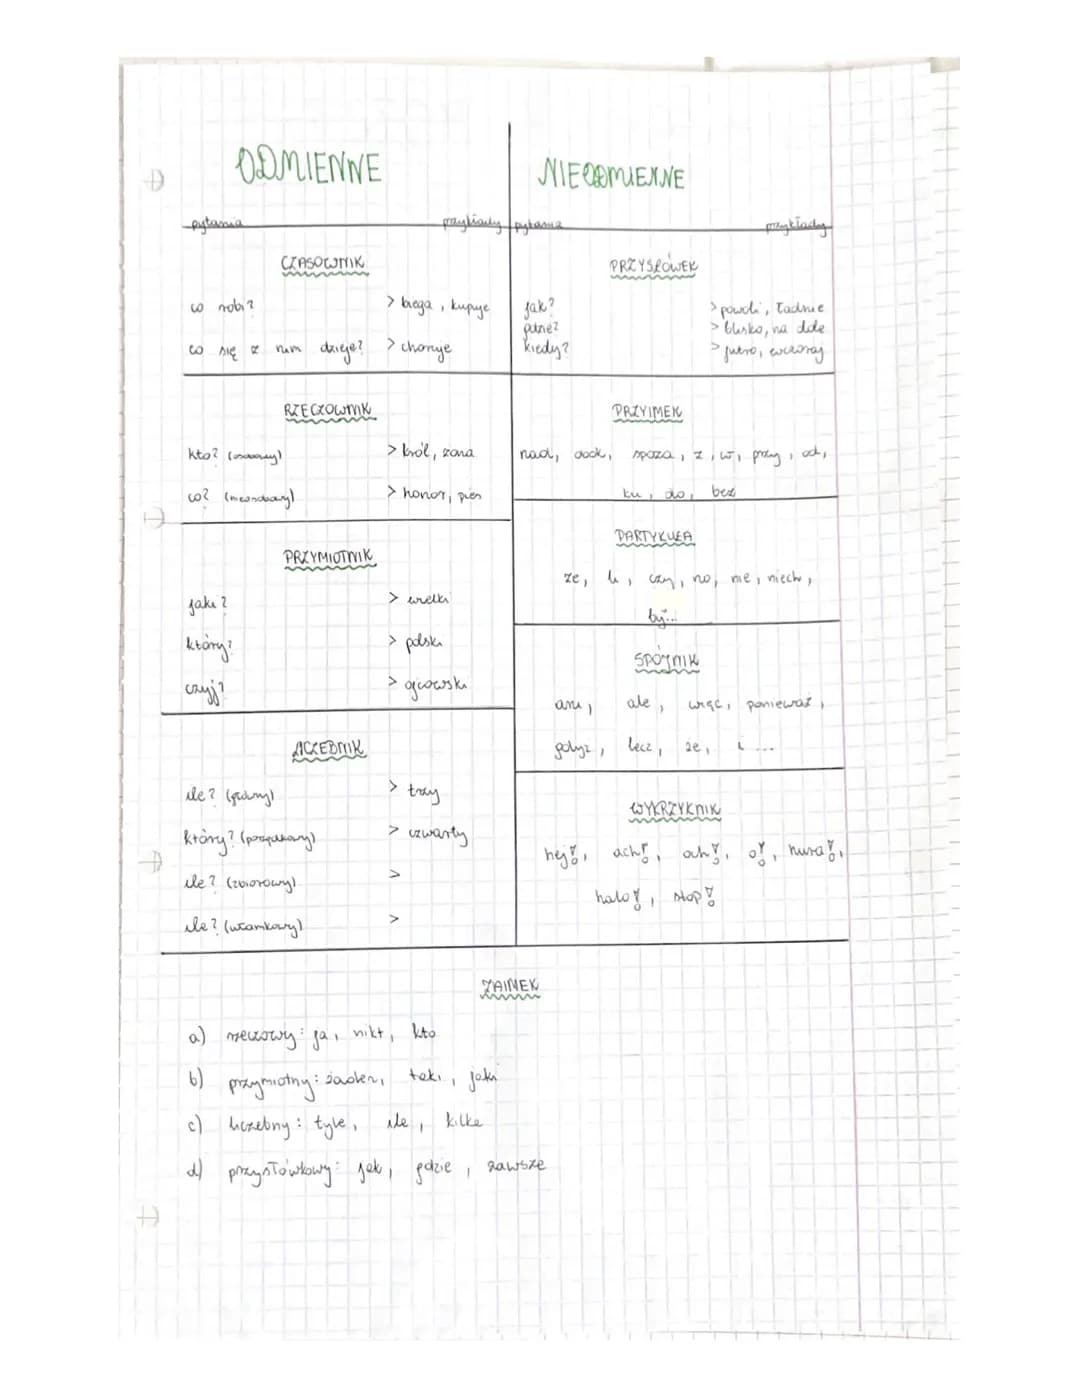 ODMIENNE
pytania przykłady
CZASOWNIK
co robi? > biega, kupuje
co się z nim dzieje? > choruje
RZECZOWNIK
kto? (osobowy) > król, żona
co? (nieosobowy) > honor, pies
PRZYMIOTNIK
jaki? > wielki
który? > polski
czyj? > ojcowski
LICZEBNIK
ile? (główny) > trzy
który? (porządkowy) > czwarty
ile? (zbiorowy) >
ile? (ułamkowy) >
NIEODMIENNE
pytania przykłady
PRZYSŁÓWEK
jak? > powoli, ładnie
gdzie? > blisko, na dole
kiedy? > jutro, wczoraj
PRZYIMEK
nad, pod, spoza, z, w, przy, od,
ku, do, bez
PARTYKUŁA
że, li, czy, no, nie, niech,
by...
SPÓJNIK
ani, ale, więc, ponieważ,
gdyż, lecz, że, i ...
WYKRZYKNIK
hej!, ach!, och!, o!, hura!,
halo!, stop!
ZAIMEK
a) rzeczowny: ja, nikt, kto
b) przymiotny: żaden, taki, jaki
c) liczebny: tyle, ile, kilka
d) przysłówkowy: jak, gdzie, zawsze